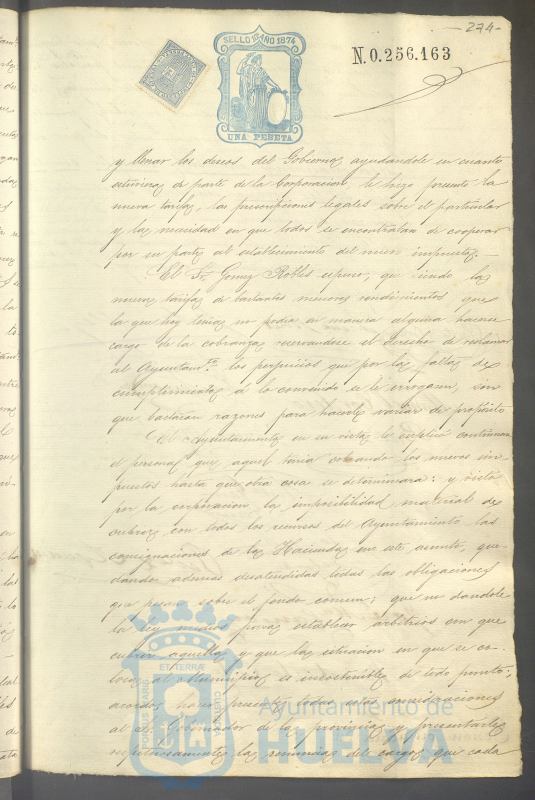 274
SELLO 10º AÑO 1874
UNA PESETA
N.0.256.163
y llenar los deseos del Gobierno ayudandole en cuanto
estuviera de parte de la Corporacion, le hizo presente la
nueva tarifa, las prescripciones legales sobre el particular
y la necesidad en que todos se encontraban de cooperar
por su parte al establecimiento del nuevo impuesto.
El Sr. Gomez Robles espuso, que siendo la
nueva tarifa de bastantes menores rendimientos que
la que hoy tenia no podia en manera alguna hacerse
cargo de la cobranza reservandose el derecho de reclamar
al Ayuntamto. los perjuicios que por la falta de
cumplimiento á lo convenido se le irrogaran, sin
que bastaran razones para hacerle variar de propósito
El Ayuntamiento en su vista le suplicó continuara
el personal que aquel tenia cobrando los nuevos im-
puestos hasta que otra cosa se determinara: y visto
por la corporacion la imposibilidad material de
cubrir con todos los recursos del Ayuntamiento las
consignaciones de la Hacienda en este asunto, que-
dando ademas desatendidas todas las obligaciones
que pesan sobre el fondo comun; que no dandole
la ley medios para establecer arbitrios con que
cubrir aquellas y que la situacion en que se co-
loca al Municipio es insostenible de todo punto;
acordó hacer presente estas
al Sr. Gobernador de la provincia y presentarle
respetuosamente la renuncia del cargo que cada
PORTUS MARIS
ET TERRÆ
CUSTODIA
Ayuntamiento de
HUELVA